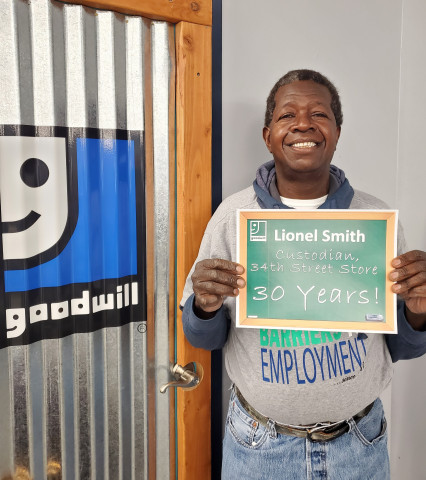 goodwill
Lionel Smith
Custodian,
34th Street Store
30 Years!
BARRIERS
EMPLOYMENT